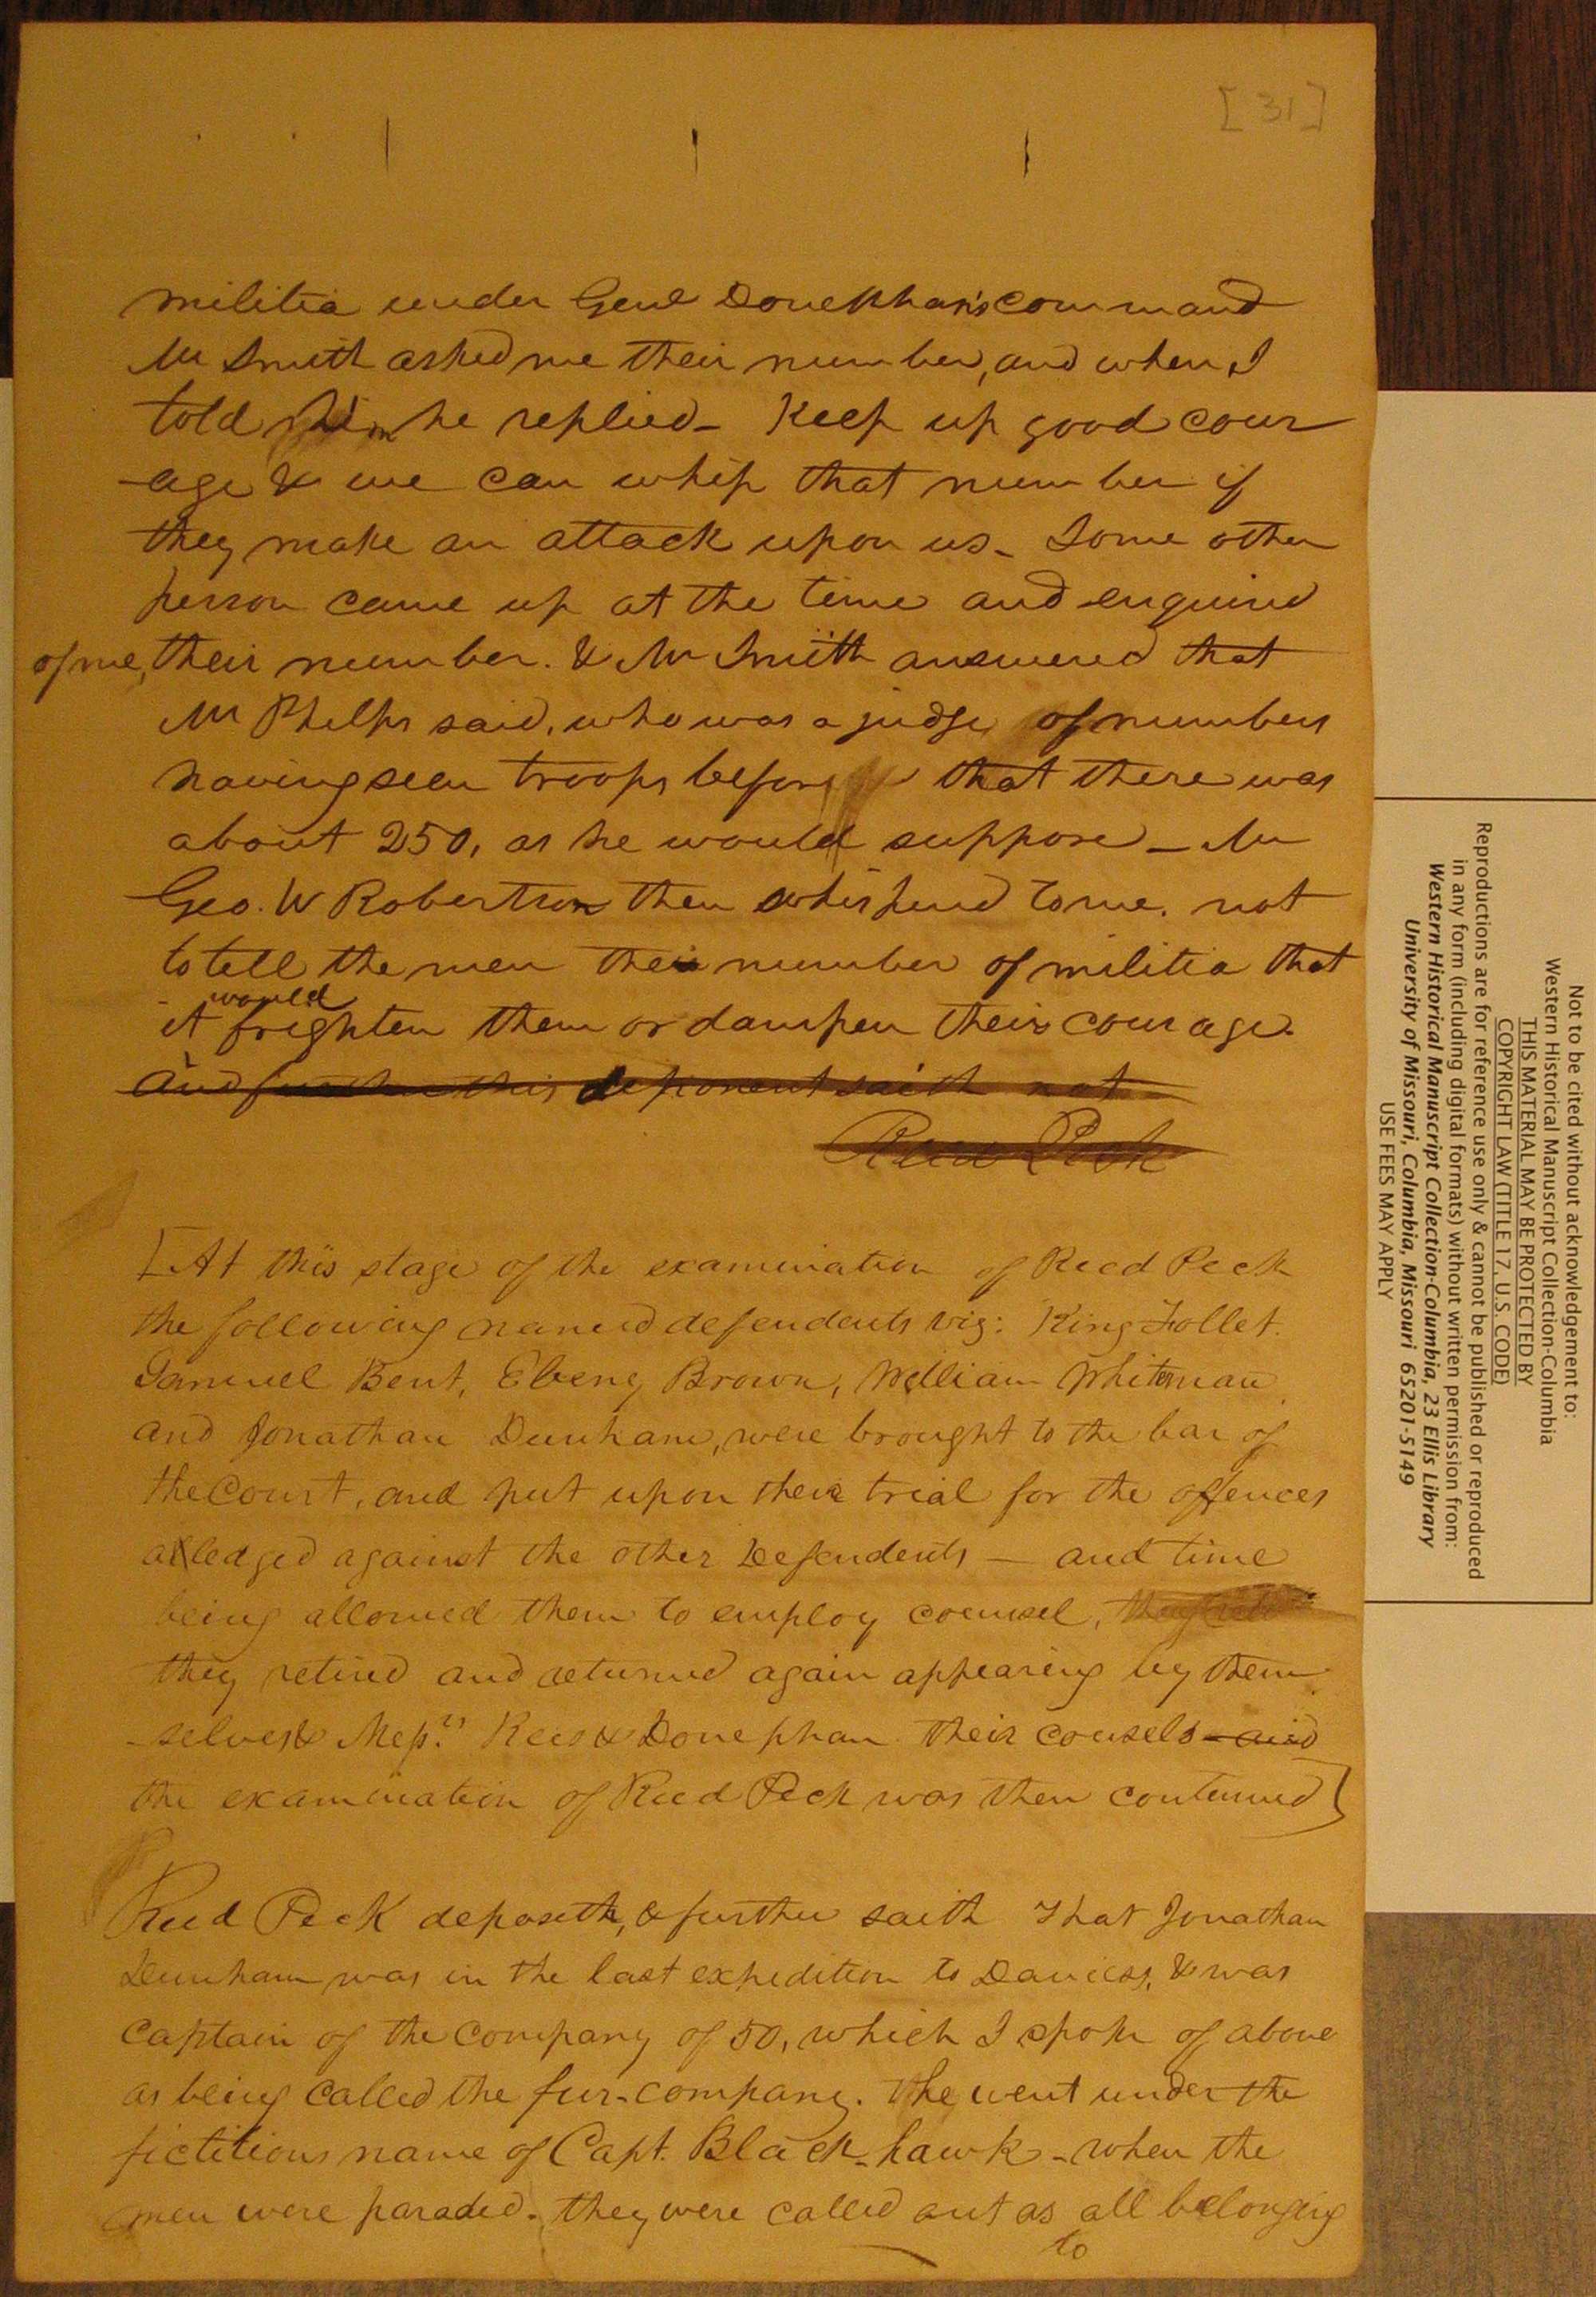 [31]
militia under Genl Donephan's command
Mr Smith asked me their number, and when I
told him he replied- Keep up good cour
-age & we can whip that number if
they make an attack upon us- Some other
person came up at the time and enquired
of me, their number. & Mr Smith answered that
Mr Phelps said, who was a judge of numbers
having seen troops before that there was
about 250, as he would suppose - Mr
Geo. W Robertson then whispered to me. not
to tell the men their number of militia that
it would frighten them or dampen their courage.
And further this deponent saith not
Reed Peck
[At this stage of the examination of Reed Peck
the following named defendents viz: King Follet.
Samuel Bent, Ebenz Brown, William Whiteman
and Jonathan Dunham, were brought to the bar of
the Court, and put upon their trial for the offences
alledged against the other Defendents — and time
being allowed them to employ counsel,
they retired and returned again appearing by them
-selves & Messrs. Rees & Donephan their counsels - and
the examination of Reed Peck was then contenued]
Reed Peck deposeth, & further saith That Jonathan
Dunham was in the last expedition to Daviess, & was
Captain of the Company of 50, which I spoke of above
as being called the fur-company. he went under the
fictitious name of Capt. Black-hawk - when the
men were paraded. they were called out as all belonging
to
Not to be cited without acknowledgement to:
Western Historical Manuscript Collection-Columbia
THIS MATERIAL MAY BE PROTECTED BY
COPYRIGHT LAW (TITLE 17, U.S. CODE)
Reproductions are for reference use only & cannot be published or reproduced
in any form (including digital formats) without written permission from:
Western Historical Manuscript Collection-Columbia, 23 Ellis Library
University of Missouri, Columbia, Missouri 65201-5149
USE FEES MAY APPLY